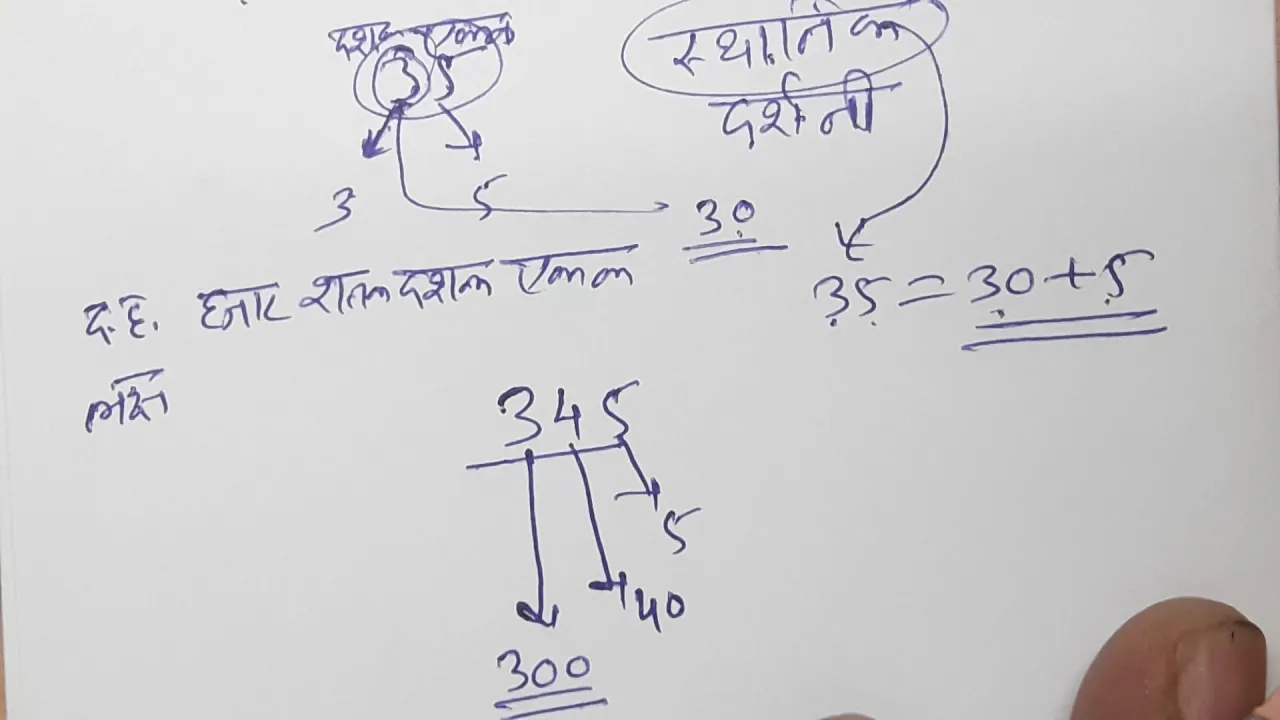 दशक एकक
35
स्थानिक
दर्शनी
3 5
30
35 = 30 + 5
द.ह. हजार शतक दशक एकक
लक्ष
345
5
40
300